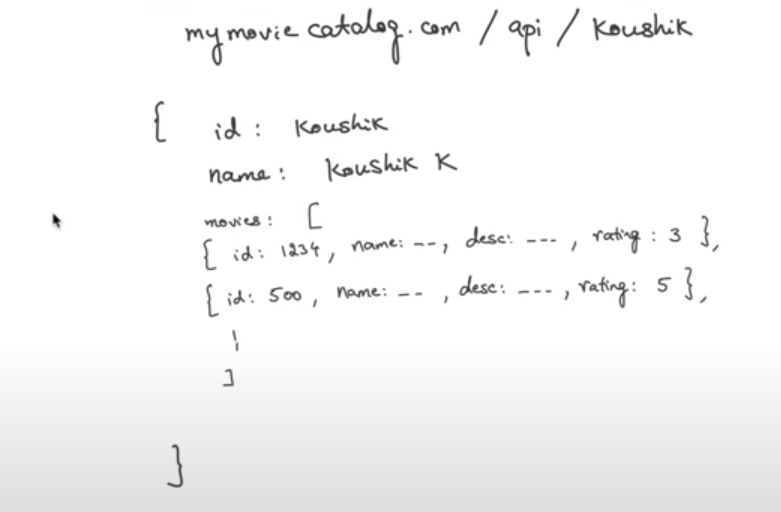 mymoviecatalog.com / api / Koushik
{ id : Koushik
name : Koushik K
movies : [
{ id : 1234 , name: -- , desc: --- , rating : 3 },
{ id: 500 , name: -- , desc: --- , rating: 5 },
¦
]
}